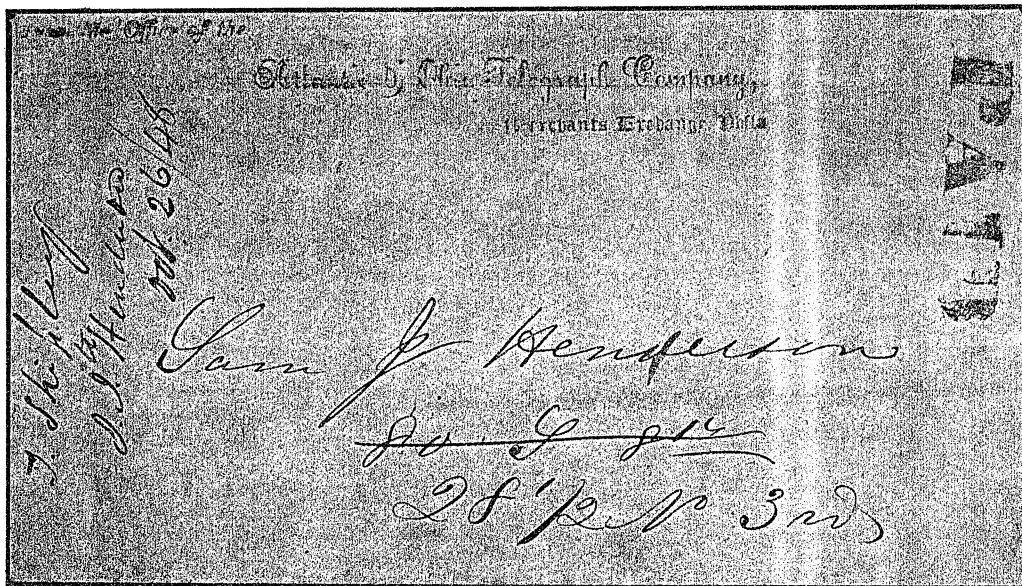 From the Office of the
Atlantic & Ohio Telegraph Company,
Merchants Exchange Phila
PAID
T. Shipley
S J Henderson
Oct. 26/48
Sam J Henderson
80 S 8th
28 1/2 N 3rd